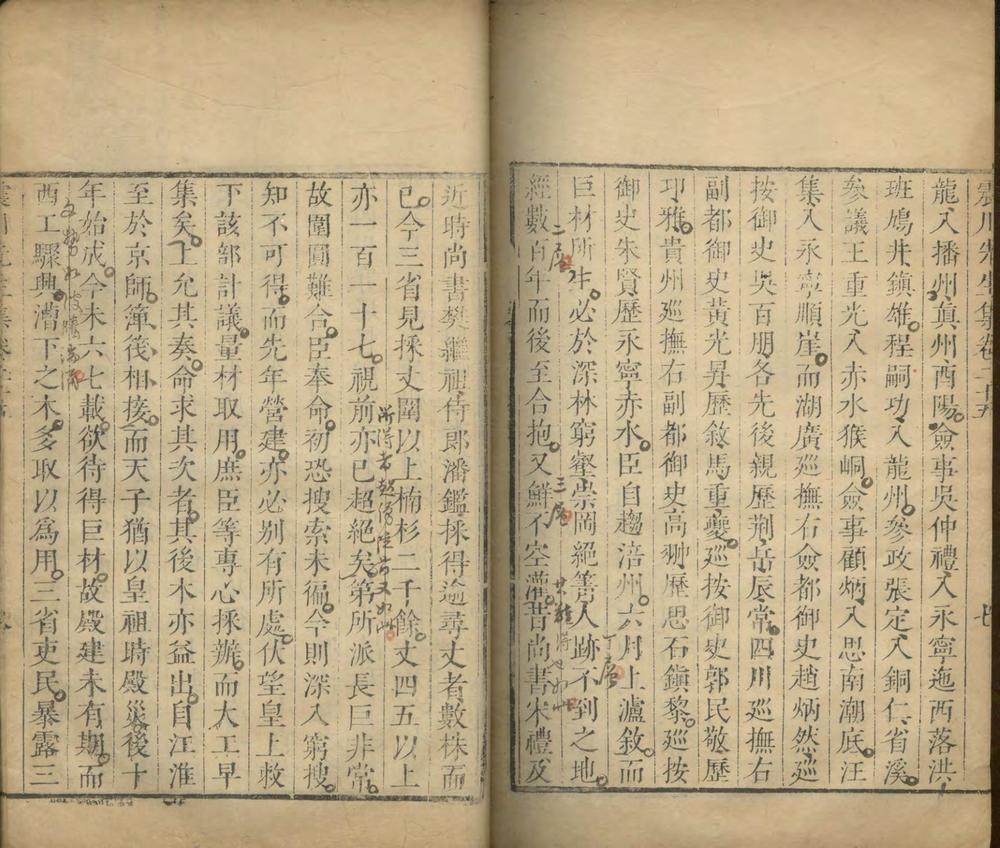 震川先生集卷二十五
七
龍入播州真州酉陽僉事吳仲禮入永寧迤西落洪
班鳩井鎮雄程嗣功入龍州參政張定入銅仁省溪
參議王重光入赤水猴峒僉事顧炳入思南潮底汪
集入永寧順崖而湖廣巡撫右僉都御史趙炳然巡
按御史吳百朋各先後親歷荆岳辰常四川巡撫右
副都御史黃光昇歷敘馬重夔巡按御史郭民敬歷
卭雅貴州巡撫右副都御史高翀歷思石鎮黎巡按
御史朱賢歷永寧赤水臣自趨涪州六月上瀘敘而
巨材所生必於深林窮壑崇岡絕箐人跡不到之地
經數百年而後至合抱又鮮不空灌昔尚書宋禮及
二層
三層
丁層
近時尚書樊繼祖侍郎潘鑑採得逾尋丈者數株而
已今三省見採丈闊以上楠杉二千餘丈四五以上
亦一百一十七視前亦已超絕矣第所派長巨非常
故圍圓難合臣奉命初恐搜索未徧今則深入窮搜
知不可得而先年營建亦必别有所處伏望皇上敕
下該部計議量材取用庶臣等專心採辦而大工早
集矣上允其奏命求其次者其後木亦益出自江淮
至於京師簰筏相接而天子猶以皇祖時殿災後十
年始成今未六七載欲待得巨材故殿建未有期而
西工驟興漕下之木多取以為用三省吏民暴露三